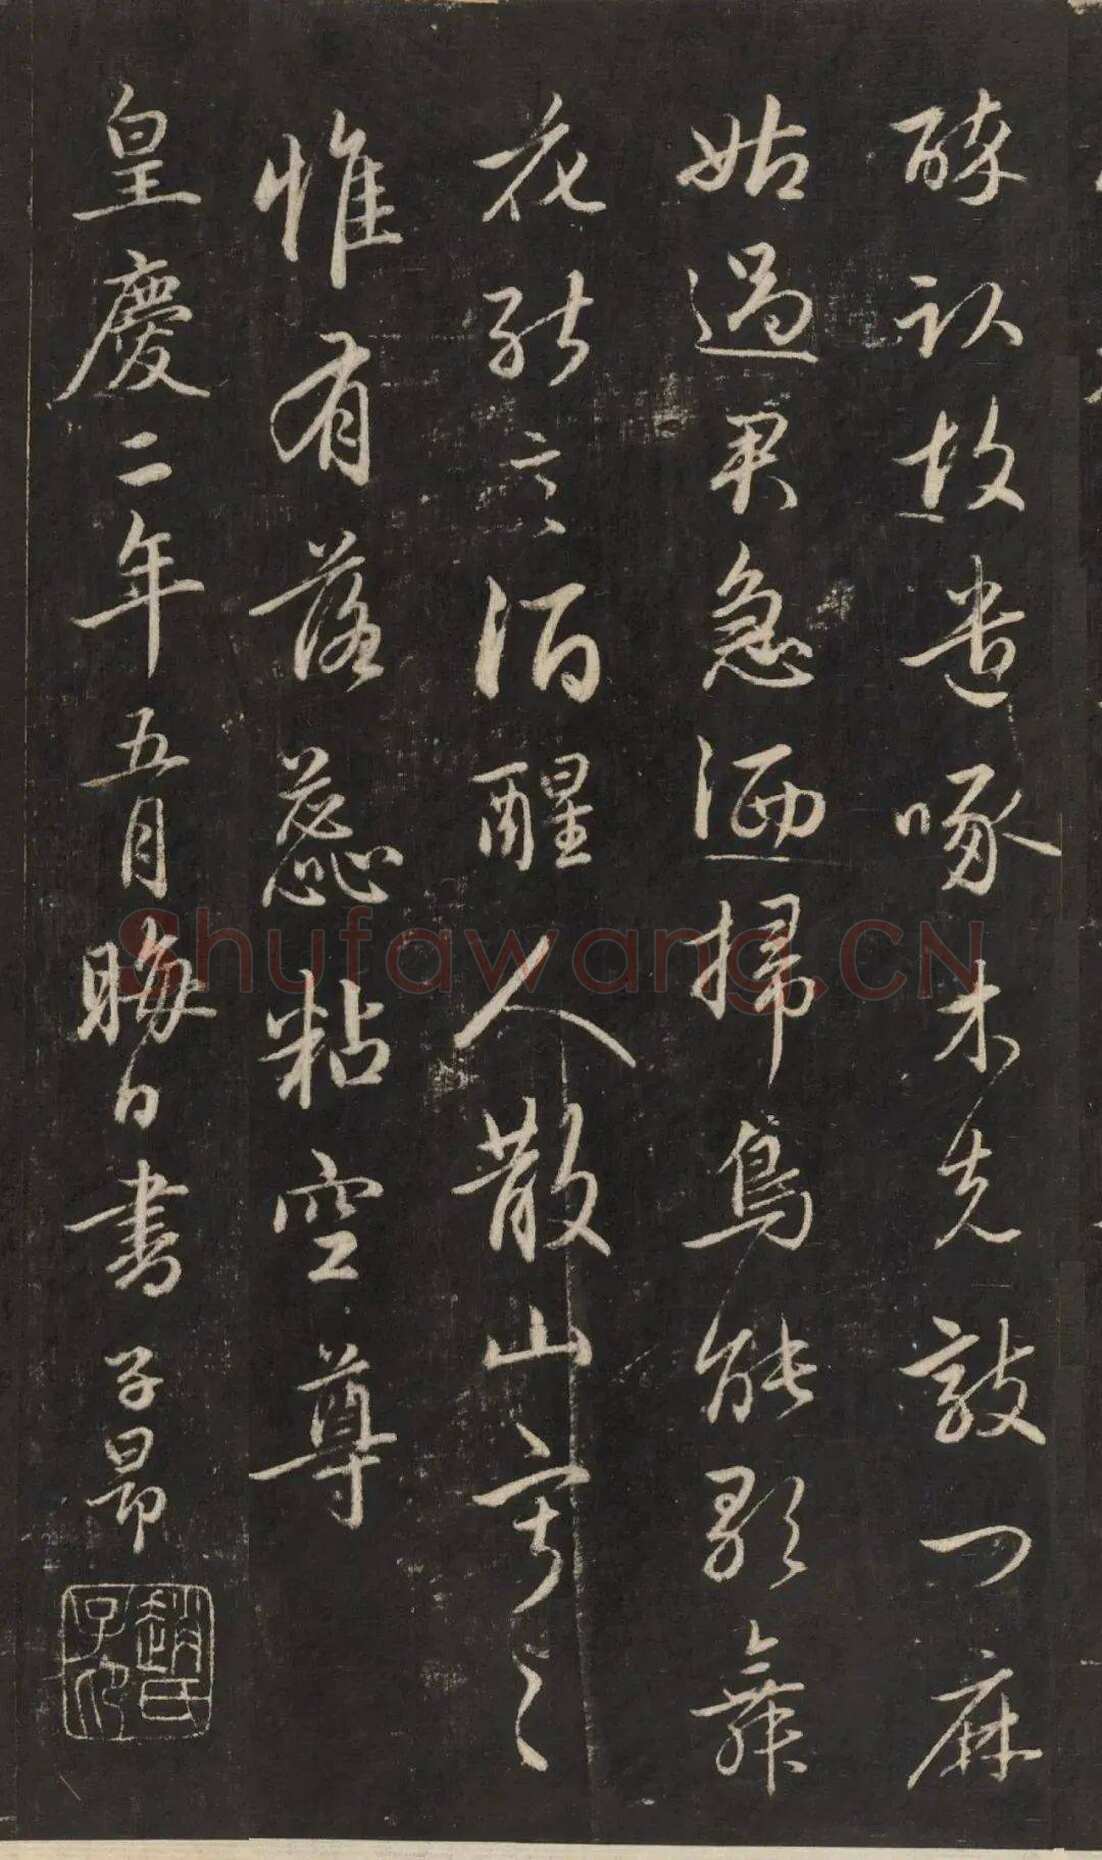 醉卧故遣啄木先敲门麻
姑過君急洒掃鳥能歌舞
花能言酒醒人散山寂寂
惟有落蕊粘空尊
皇慶二年五月晦日書子昂
趙氏子昂
Shufawang.CN